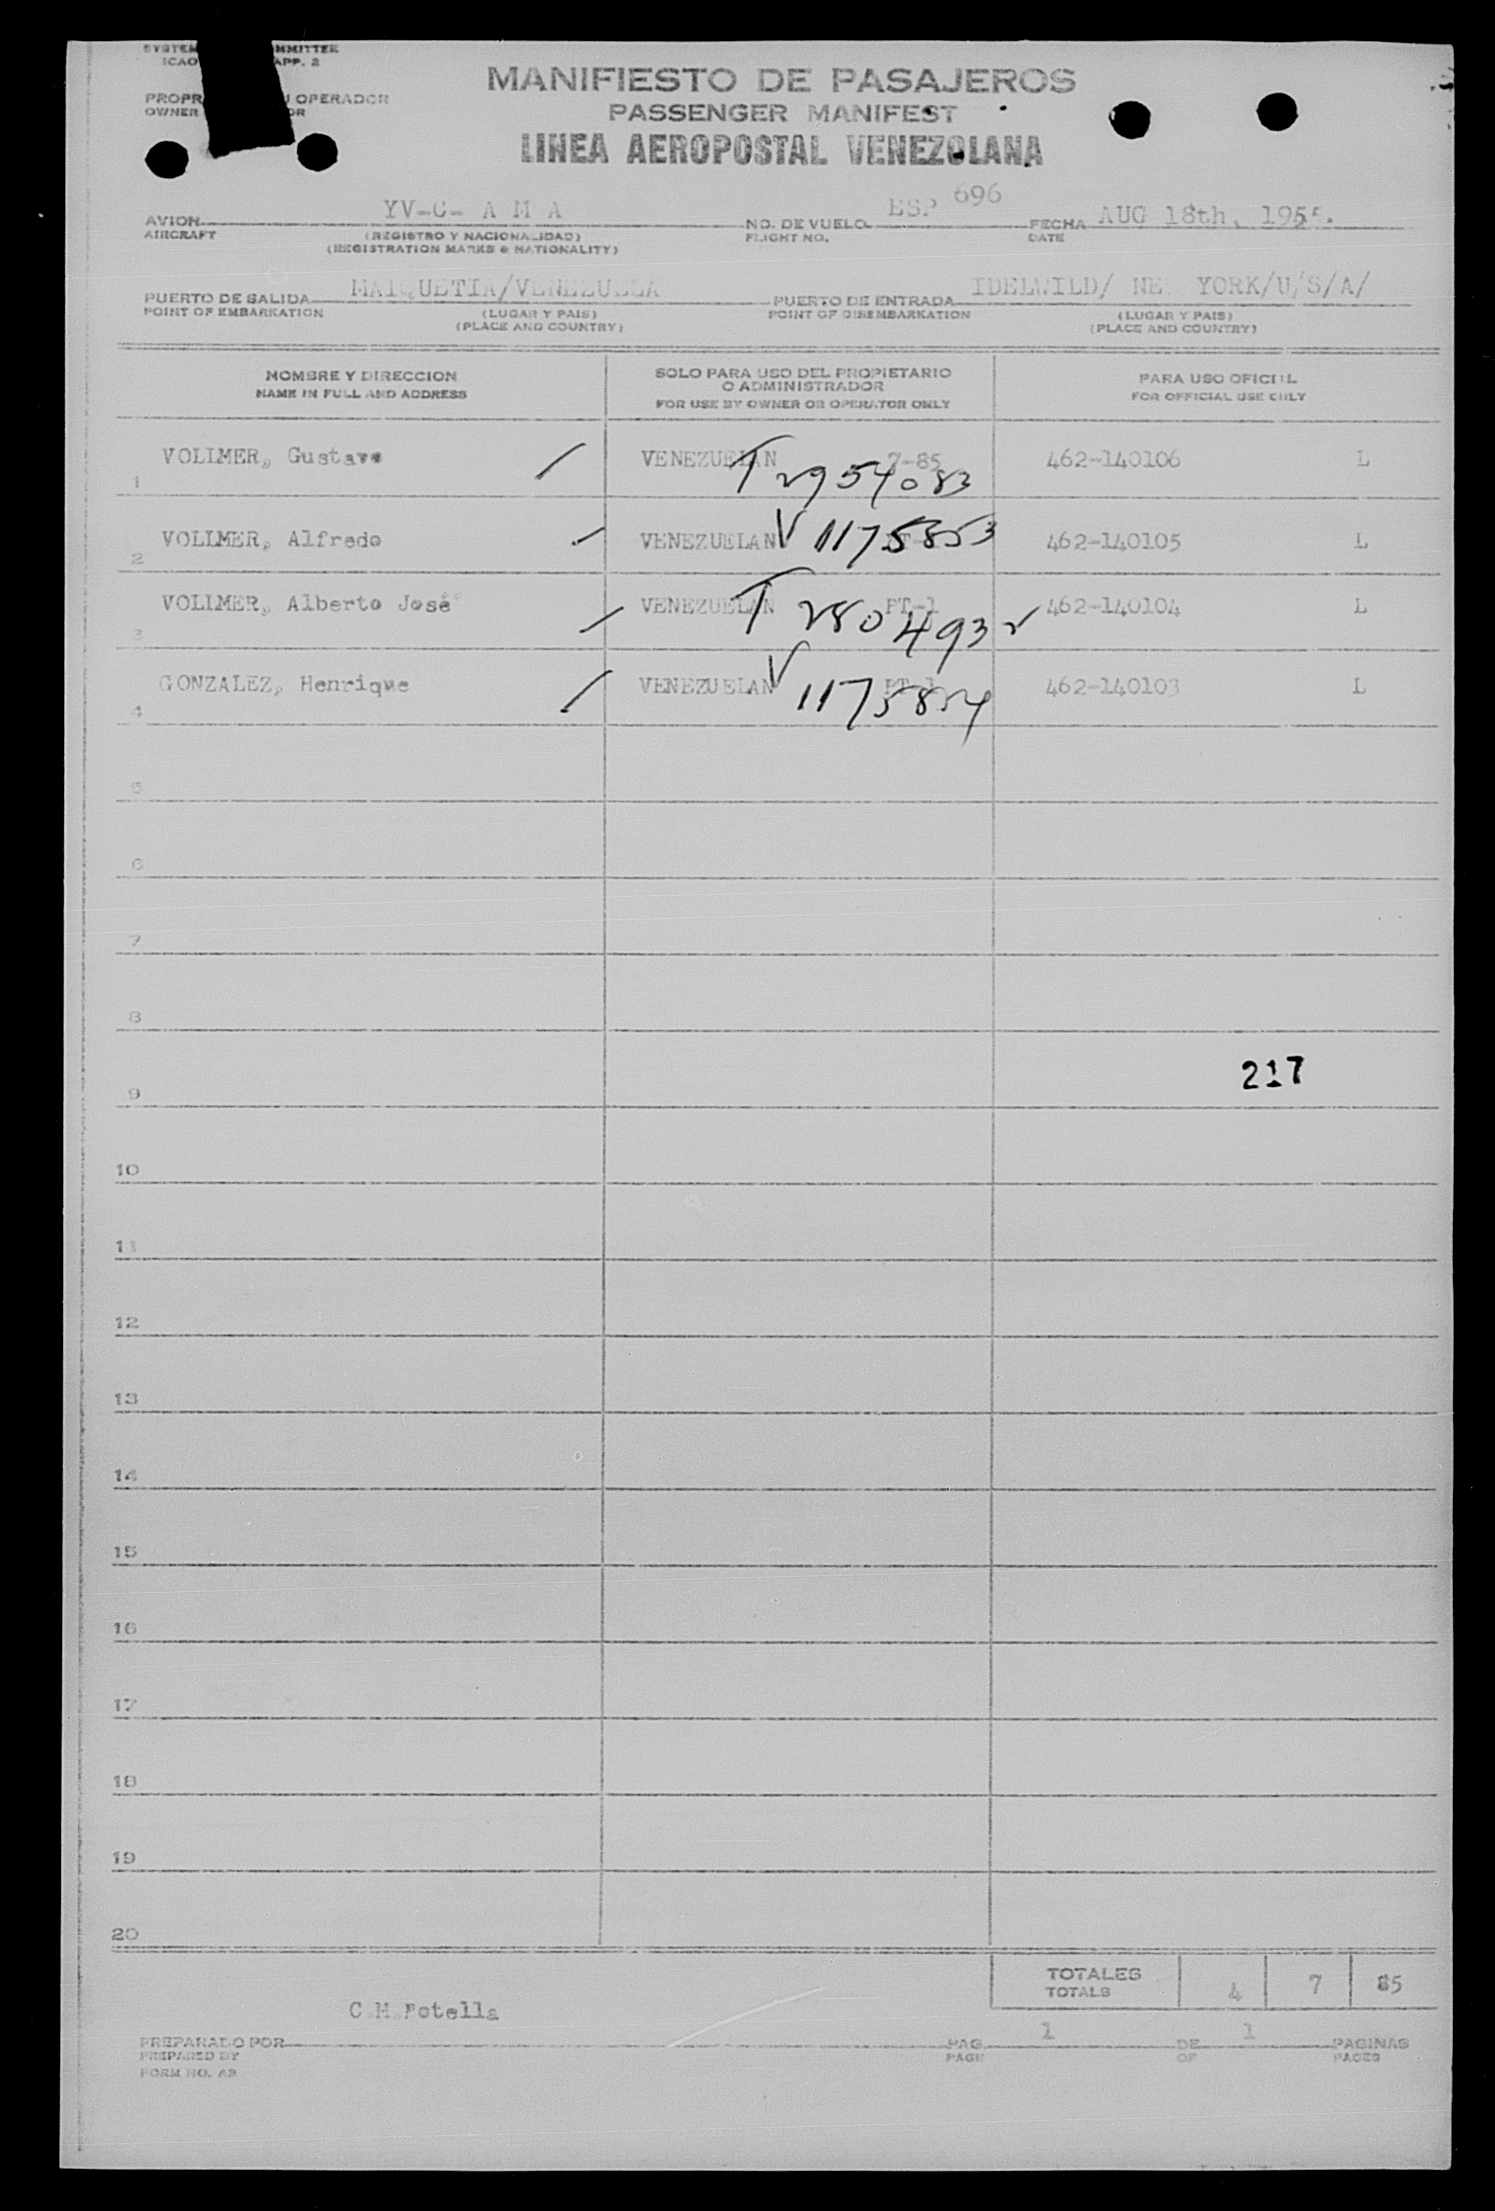 MANIFIESTO DE PASAJEROS
PASSENGER MANIFEST
LINEA AEROPOSTAL VENEZOLANA
ICAO APP. 2
OPERADOR
OWNER
AVION YV-C- A M A NO. DE VUELO ESP 696 FECHA AUG 18th, 1955.
AIRCRAFT (REGISTRO Y NACIONALIDAD) FLIGHT NO. DATE
(REGISTRATION MARKS & NATIONALITY)
PUERTO DE SALIDA MAIQUETIA/VENEZUELA PUERTO DE ENTRADA IDELWILD/ NE YORK/U/S/A/
POINT OF EMBARKATION (LUGAR Y PAIS) POINT OF DISEMBARKATION (LUGAR Y PAIS)
(PLACE AND COUNTRY) (PLACE AND COUNTRY)
NOMBRE Y DIRECCION SOLO PARA USO DEL PROPIETARIO PARA USO OFICIAL
O ADMINISTRADOR
NAME IN FULL AND ADDRESS FOR USE BY OWNER OR OPERATOR ONLY FOR OFFICIAL USE ONLY
1 VOLLMER, Gustavo VENEZUELAN 7-85 462-140106 L
T 2954083
2 VOLLMER, Alfredo VENEZUELAN V 1175853 462-140105 L
3 VOLLMER, Alberto José VENEZUELAN PT-1 462-140104 L
T 2804932
4 GONZALEZ, Henrique VENEZUELAN PT-1 462-140103 L
V 1175854
5
6
7
8
217
9
10
11
12
13
14
15
16
17
18
19
20
TOTALES 4 7 85
TOTALS
C.M.Potella
PREPARADO POR PAG. 1 DE 1 PAGINAS
PREPARED BY PAGE OF PAGES
FORM NO. A2